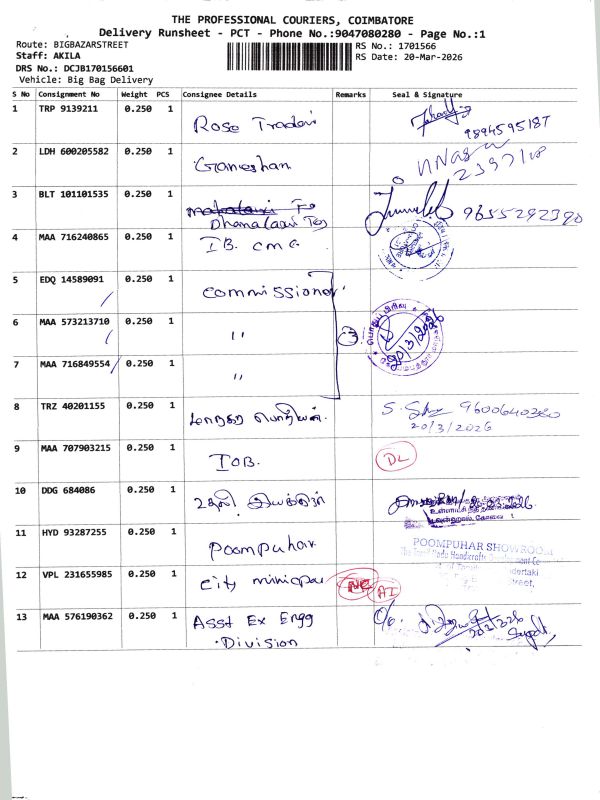 THE PROFESSIONAL COURIERS, COIMBATORE
Delivery Runsheet - PCT - Phone No.:9047080280 - Page No.:1
Route: BIGBAZARSTREET
Staff: AKILA
DRS No.: DCJB170156601
Vehicle: Big Bag Delivery
RS No.: 1701566
RS Date: 20-Mar-2026
S No Consignment No Weight PCS Consignee Details Remarks Seal & Signature
1 TRP 9139211 0.250 1 Rose Traders 9894595187
2 LDH 600205582 0.250 1 Ganeshan
3 BLT 101101535 0.250 1 Dhanalaxmi Tex 9655292390
4 MAA 716240865 0.250 1 I.B. C M C
5 EDQ 14589091 0.250 1 Commissioner
6 MAA 573213710 0.250 1 " 3 20/3/2026
7 MAA 716849554 0.250 1 "
8 TRZ 40201155 0.250 1 மாநகர பொறியாளர். S. 9600640380
20/3/2026
9 MAA 707903215 0.250 1 IOB. DL
10 DDG 684086 0.250 1 உதவி இயக்குநர் 20.03.2026
11 HYD 93287255 0.250 1 Poompuhar POOMPUHAR SHOWROOM
12 VPL 231655985 0.250 1 City NC AI
Street,
13 MAA 576190362 0.250 1 Asst Ex Engg
Division